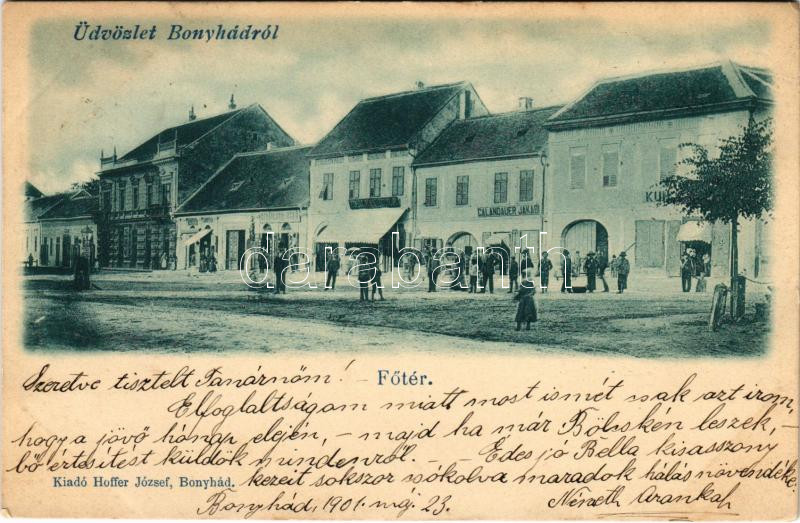 Üdvözlet Bonyhádról
CALANDAUER JAKAB
KU
darabanth.com
Szeretve tisztelt Tanárnőm! – Főtér.
Elfoglaltságom miatt most ismét csak azt irom,
hogy a jövő hónap elején, – majd ha már Bölcskén leszek, –
bő értesítést küldök mindenről. – Édes jó Bella kisasszony
Kiadó Hoffer József, Bonyhád. kezeit sokszor csókolva maradok hálás növendéke:
Bonyhád, 1901. máj. 23. Németh Aranka